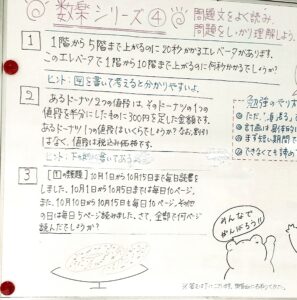 数楽シリーズ④
問題文をよく読み、
問題をしっかり理解しよう。
1 1階から5階まで上るのに20秒かかるエレベータがあります。
このエレベータで1階から10階まで上るのに何秒かかるでしょうか?
ヒント:図を書いて考えると分かりやすいよ。
2 あるドーナツ1つの値段は、そのドーナツの1つの
値段を半分にしたものに300円を足した金額です。
あるドーナツ1つの値段はいくらでしょうか? なお、割引
はなく、値段は税込み価格です。
ヒント:下の図に書いてみる
3 10月1日から10月15日まで毎日読書を
しました。10月1日から10月5日までは毎日10ページ、
また、10月10日から10月15日も毎日10ページ、その
の日は毎日5ページ読みました。さて、全部で何ページ
読んだでしょうか?
勉強のやり
ただ、
計画は
まず短い期間で
できなくても
みんなで
がんばろう!!